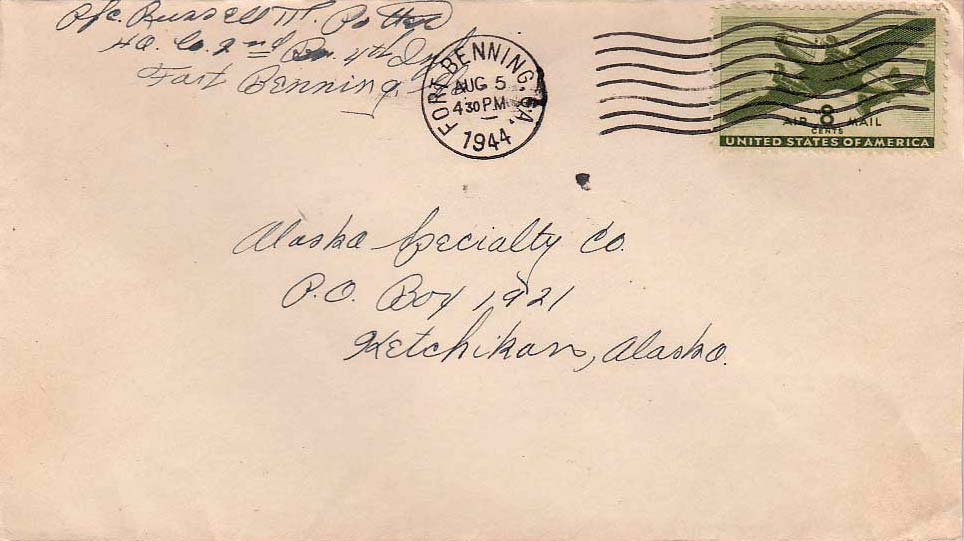 Pfc. Russell M. Potter
HQ. Co. 2nd Bn. 4th Inf.
Fort Benning, Ga.
FORT BENNING, GA.
AUG 5
4 30 P.M.
1944
AIR 8 MAIL
CENTS
UNITED STATES OF AMERICA
Alaska Specialty Co.
P.O. Box 1921
Ketchikan, Alaska.